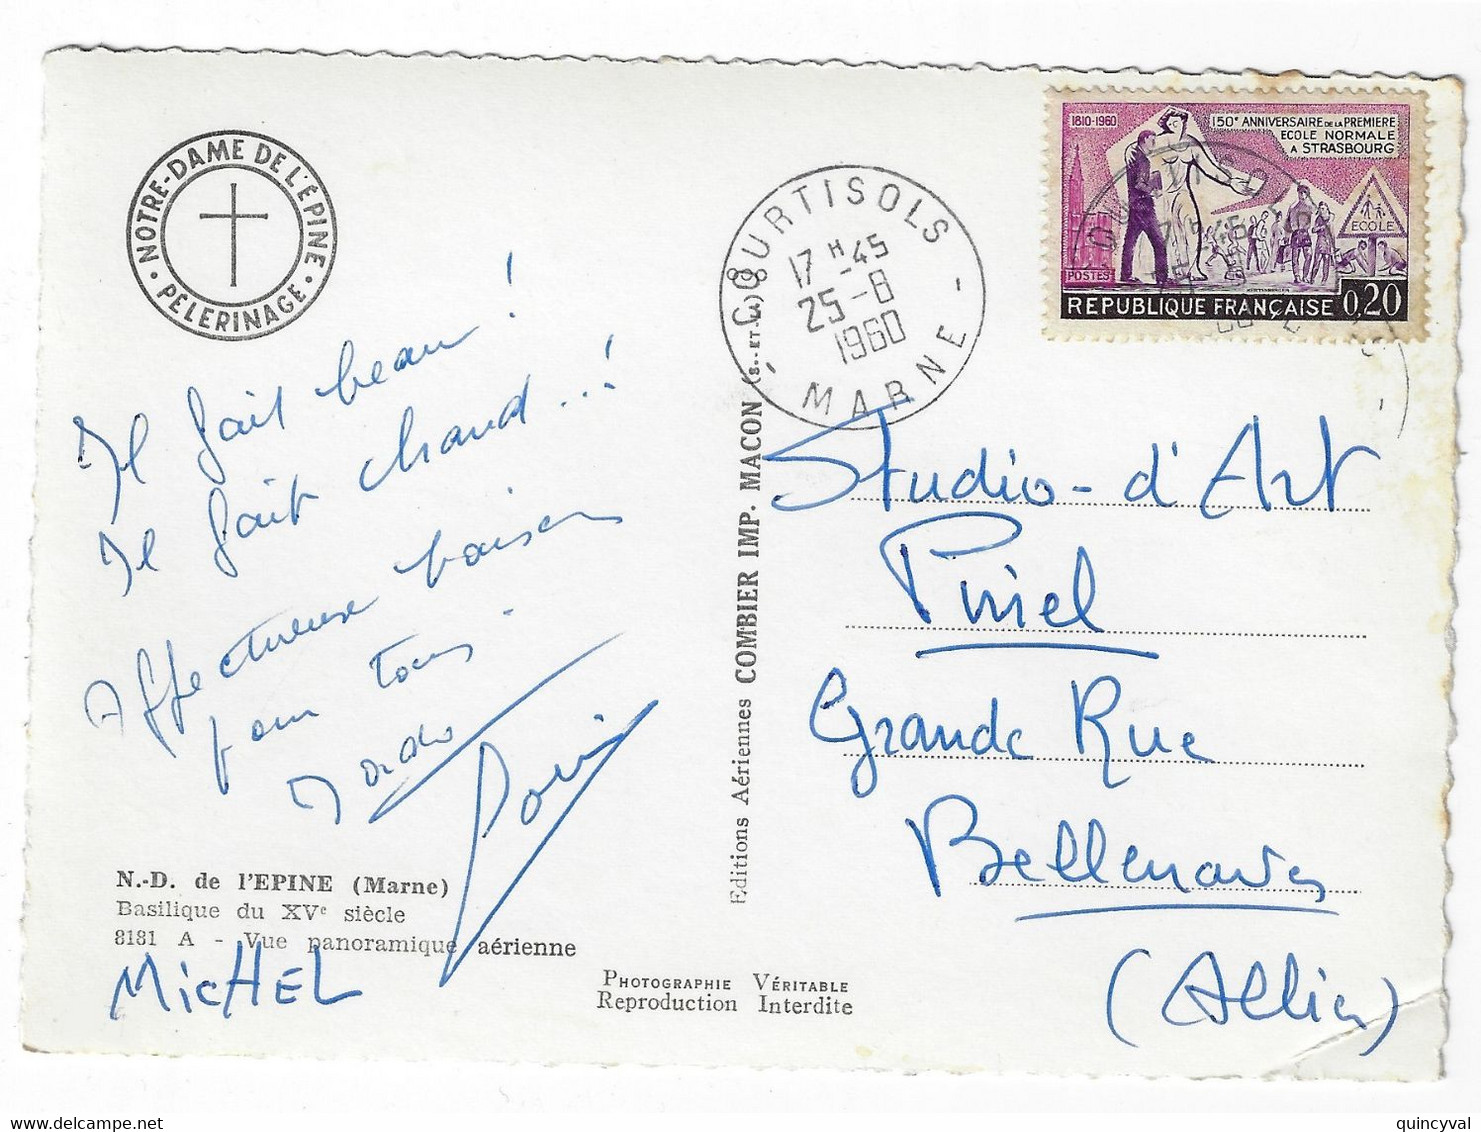 NOTRE-DAME DE L'ÉPINE
• PÈLERINAGE •
1810-1960
150e ANNIVERSAIRE DE LA PREMIERE
ECOLE NORMALE
A STRASBOURG
ECOLE
POSTES
REPUBLIQUE FRANÇAISE 0,20
COURTISOLS
17 H -45
25 -8
1960
- MARNE -
Il fait beau !
Il fait chaud...!
Affectueux baisers
pour tous.
N.-D. de l'EPINE (Marne)
Basilique du XVe siècle
8181 A - Vue panoramique aérienne
MicHEL
Editions Aériennes COMBIER IMP. MACON (S.-ET-L.)
PHOTOGRAPHIE VÉRITABLE
Reproduction Interdite
Studio-d'Art
Piniel
Grande Rue
Bellenaves
(Allier)
quincyval